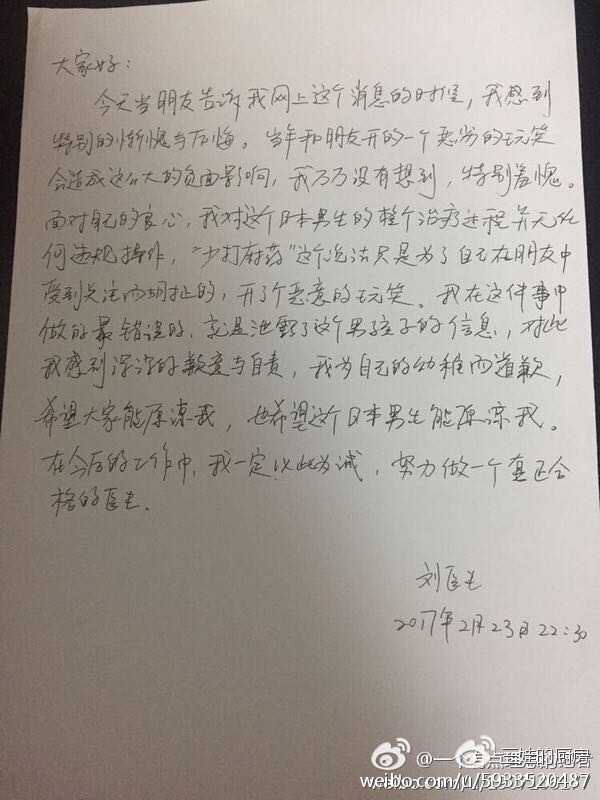 大家好：
今天当朋友告诉我网上这个消息的时候，我感到
特别的惭愧与后悔。当年和朋友开的一个恶劣的玩笑
会造成这么大的负面影响，我万万没有想到，特别羞愧。
面对自己的良心，我对这个日本男生的整个治疗进程并无任
何违规操作，“少打麻药”这个说法只是为了自己在朋友中
受到关注而胡扯的，开了个恶意的玩笑。我在这件事中
做的最错误的，就是泄露了这个男孩子的信息，对此
我感到深深的歉意与自责，我为自己的幼稚而道歉，
希望大家能原谅我，也希望这个日本男生能原谅我。
在今后的工作中，我一定以此为诫，努力做一个真正合
格的医生.
刘医生
2017年2月23日22:30
weibo.com/u/5933520487